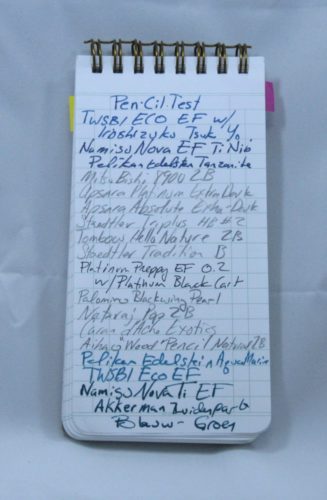 Pen·Cil Test
TWSBI ECO EF w/
Iroshizuku Tsuk Yo
Namisu Nova EF Ti Nib
Pelikan Edelstein Tanzanite
Mitsubishi 9900 2B
Apsara Platinum Extra Dark
Apsara Absolute Extra-Dark
Staedtler HB #2
Tombow Hello Nature 2B
Staedtler Tradition B
Platinum Preppy EF 0.2
w/Platinum Black Cart
Palomino Blackwing Pearl
Nataraj Pop 2B
Caran d'Ache Exotics
Wood Pencil Natural 2B
Pelikan Edelstein AquaMarine
TWSBI Eco EF
Namisu Nova Ti EF
Akkerman Zuiderpark
Blauw-Groen